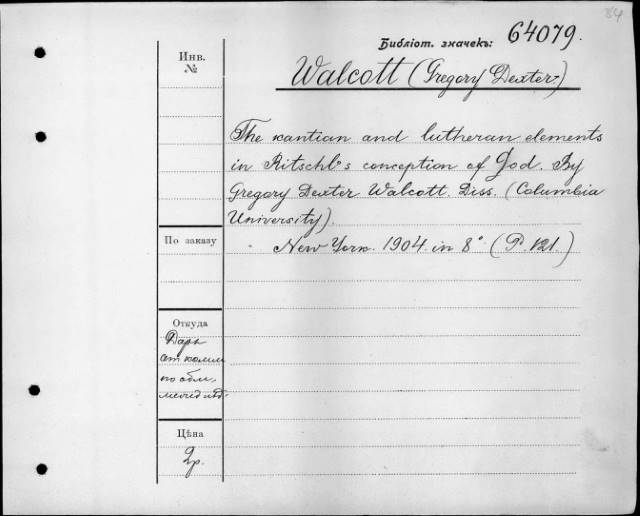 84
Библіот. значекъ: 64079.
Инв.
№
Walcott (Gregory Dexter)
The kantian and lutheran elements
in Ritschl's conception of God. By
Gregory Dexter Walcott. Diss. (Columbia
University).
По заказу
New York. 1904. in 8° (P. 121.)
Откуда
Даръ
от комм
по обм.
Цѣна
2р.